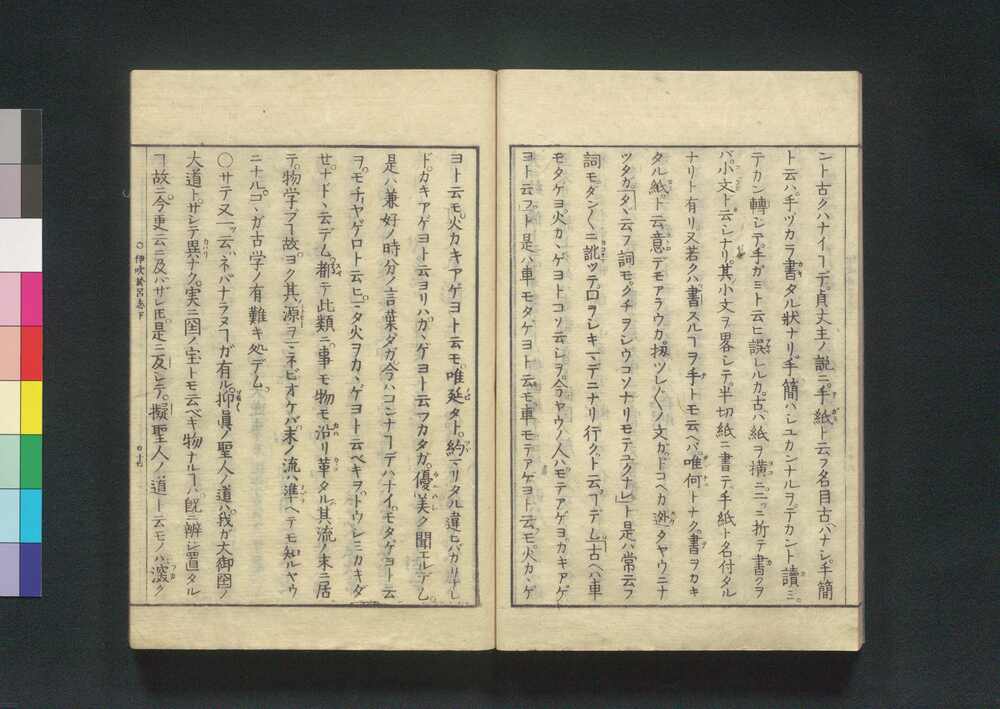 ント古クハナイヿデ、貞丈主ノ説ニ手紙ト云フ名目古ハナシ、手簡
ト云ハ、手ヅカラ書タル状ナリ、手簡ハシユカンナルヲデカント讀ミ、
テカン轉シテ手ガミト云ヒ誤レルカ、古ハ紙ヲ横ニ二ツニ折テ書クヲ
バ小文ト云シナリ、其小文ヲ畧シテ半切紙ニ書テ手紙ト名付タル
ナリト有リ、又若クハ書スルヿヲ手トモ云ヘバ、唯何トナク書ヲカキ
タル紙ト云意デモアラウカ、扨ツレ〴〵ノ文ガドコヘカ迯タヤウニナ
ツタガ、タヾ云フ詞モ、クチヲシウコソナリモテユクナレト是ハ常云フ
詞モダン〳〵ニ訛ツテ、口ヲシキマデニナリ行クト云ヿデム、古ヘハ車
モタゲヨ、火カヽゲヨトコソ云シヲ、今ヤウノ人ハモテアゲヨ、カキアゲ
ヨト云フト、是ハ車モタゲヨト云モ、車モテアゲヨト云フモ、火カヽゲ
ヨト云モ、火カキアゲヨト云モ、唯延タト、約マリタル違ヒバカリナレ
ド、カキアゲヨト云ヨリハ、カヽゲヨト云フカタガ、優美ク聞エルデム、
是ハ兼好ノ時分ノ言葉ダガ、今ハコンナヿデハナイ、モタゲヨト云
ヲ、モチヤゲロト云ヒ、
火ヲカヽゲヨト云ベキヲ、トウシミカキダ
セ、ナドヽ云デム、都テ此類ニ事モ物モ沿リ革タル其流ノ末ニ居
テ、物学ブヿ故、ヨク其源ヲ
オケバ、末ノ流ハ準ヘテモ知ルヤウ
ニナル、コヽガ古学ノ有難キ処デム、
〇サテ又一ツ云ハネバナラヌヿガ有ル、抑眞ノ聖人ノ道ハ、我ガ大御国ノ
大道ト、サシテ異ナク、実ニ国ノ宝トモ云ベキ物ナルヿハ、既ニ辨ジ置タル
ヿ故ニ、今更云ニ及バザレ𪜈、是ニ反シテ、擬聖人ノ道ト云モノハ、深ク
〇伊吹於呂志下